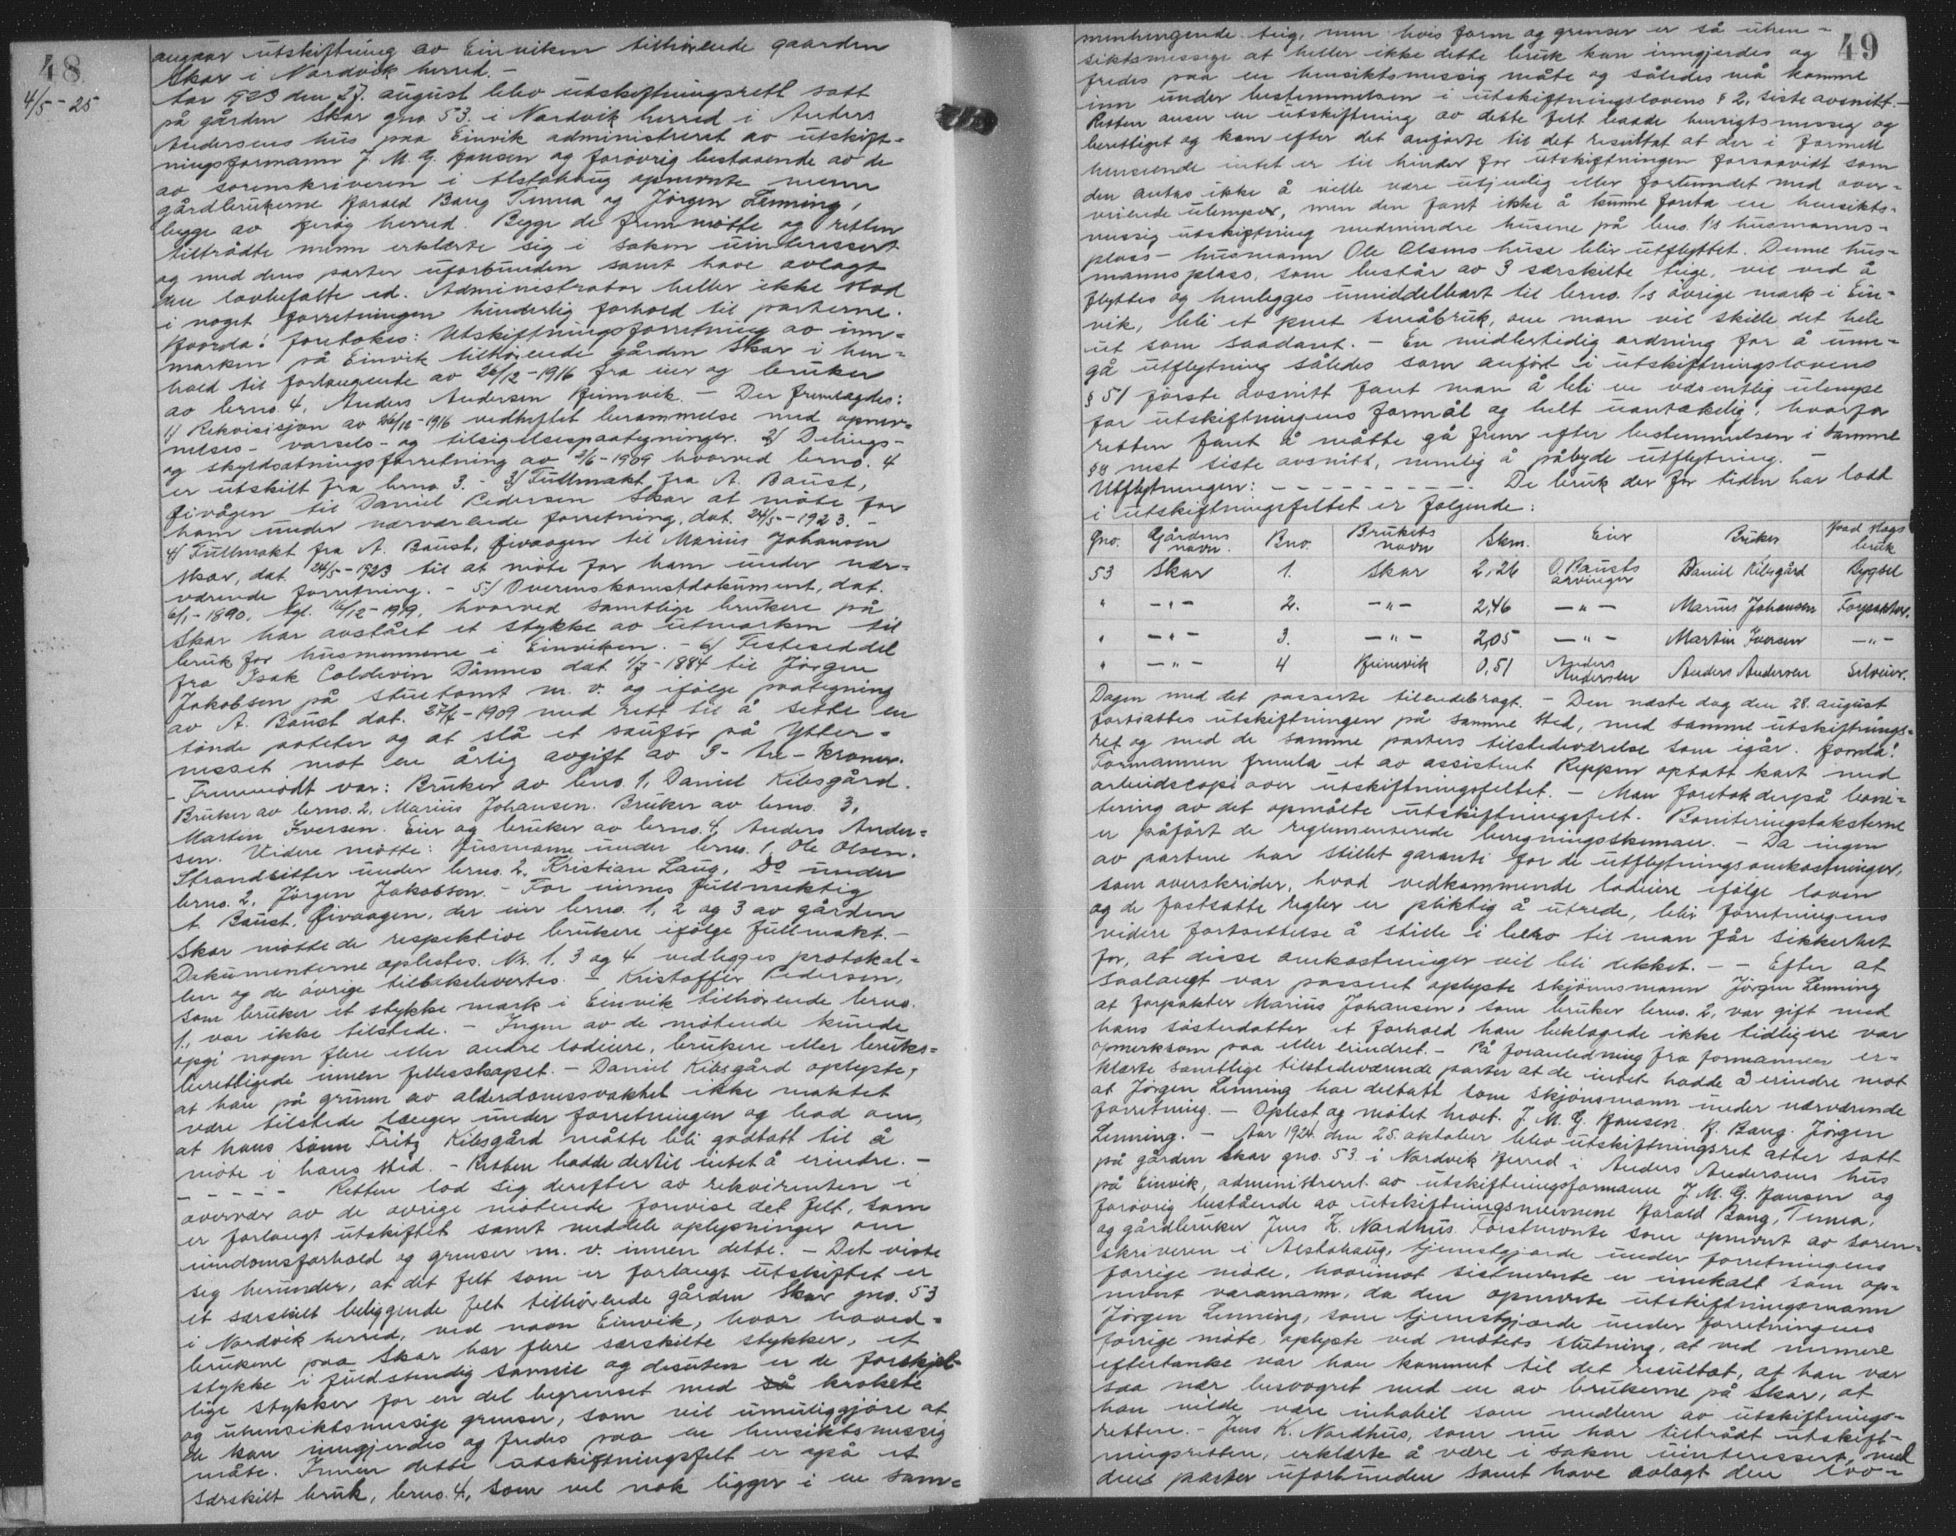 48
4/5-25
angaar utskiftning av Einviken tilhørende gaarden
Skar i Nordvik herred. -
Aar 1923 den 27. august blev utskiftningsrett satt
på gården Skar gno. 53. i Nordvik herred i Anders
Andersens hus paa Einvik administreret av utskift-
ningsformann J. M. G. Hansen og forøvrig bestaaende av de
av sorenskriveren i Alstahaug opnevnte menn
gårdbrukerne Harald Bang Tenna og Jörgen Lenning,
begge av Herøy herred. Begge de fremmøtte og retten
tiltrådte menn erklærte sig i saken uinteressert
og med dens parter uforbunden samt have avlagt
den lovbefalte ed. Administrator heller ikke stod
i noget forretningen hinderlig forhold til parterne.
Hvorda! foretokes: Utskiftningsforretning av inn-
marken på Einvik tilhørende gården Skar i hen-
hold til forlangende av 26/12-1916 fra eier og bruker
av brno. 4, Anders Andersen Heimvik. - Der fremlagdes:
1/ Rekvisisjon av 26/10-1916 vedheftet berammelse med opnev-
nelses- varsels- og tilsigelsespaategninger. 2/ Delings-
og skyldsætningsforretning av 2/6-1909 hvorved brno. 4
er utskilt fra brno 3. - 3/ Fullmakt fra A. Baust,
Givågen til Daniel Pedersen Skar at möte for
ham under nærværende forretning, dat. 24/5-1923. -
4/ Fullmakt fra A. Baust, Givaagen til Marius Johansen
Skar, dat. 24/5-1923 til at møte for ham under nær-
værende forretning. - 5/ Overenskomstdokument, dat.
6/1-1890, tgl. 16/12-1919, hvorved samtlige brukere på
Skar har avstået et stykke av utmarken til
bruk for husmennene i Einviken. - 6/ Festeseddel
fra Isak Coldevin Dønnes dat 1/7-1884 til Jörgen
Jakobsen på stuetomt m. v. og ifölge paategning
av A. Baust dat. 27/7-1909 med rett til å sette en
tønde poteter og at slå et saufòr på Ytter-
nesset mot en årlig avgift av 3- tre - kroner.
- Fremmødt var: Bruker av brno 1, Daniel Kibsgård.
Bruker av brno. 2, Marius Johansen. Bruker av brno. 3,
Martin Iversen. Eier og bruker av brno. 4, Anders Ander-
sen. Videre møtte: Husmann under brno. 1, Ole Olsen.
Strandsitter under brno. 2, Kristian Laug, Do under
brno. 2, Jörgen Jakobsen. - For eiernes fullmektig
A. Baust, Givaagen, der eier brno. 1, 2 og 3 av gården
Skar møtte de respektive brukere ifölge fullmakt. -
Dokumenterne oplestes. Nr. 1, 3 og 4 vedlegges protokol-
len og de øvrige tilbakelevertes. - Kristoffer Pedersen,
som bruker et stykke mark i Einvik tilhørende brno.
1, var ikke tilstede. - Ingen av de møtende kunde
opgi nogen flere eller andre lodeiere, brukere eller bruks-
berettigede innen fellesskapet. - Daniel Kibsgård oplyste,
at han på grunn av alderdomssvakhet ikke maktet
være tilstede længer under forretningen og bad om,
at hans sønn Fritz Kibsgård måtte bli godtatt til å
møte i hans sted. - Retten hadde dertil intet å erindre. -
- - - - - Retten lod sig derefter av rekvirenten i
overvær av de øvrige møtende forevise det felt, som
er forlangt utskiftet samt meddele oplysninger om
eiendomsforhold og grenser m. v. innen dette. - Det viste
sig herunder, at det felt som er forlangt utskiftet er
et særskilt beliggende felt tilhørende gården Skar gno. 53
i Nordvik herred, ved navn Einvik, hvor hoved-
brukene paa Skar har flere særskilte stykker, et
stykke i fuldstendig sameie og desuten er de forskjel-
lige stykker for en del begrenset med så krokete
og uhensiktsmessige grenser, som vil umuliggjøre at
de kan inngjerdes og fredes paa en hensiktsmessig
måte. Innen dette utskiftningsfelt er også et
særskilt bruk, brno. 4, som vel nok ligger i en sam-
49
menhengende teig, men hvis form og grenser er så uhen-
siktsmessige at heller ikke dette bruk kan inngjerdes og
fredes paa en hensiktsmessig måte og således må komme
inn under bestemmelsen i utskiftningslovens § 2, siste avsnitt. -
Retten anser en utskiftning av dette felt baade hensigtsmessig og
berettiget og kom efter det anførte til det resultat at der i formell
henseende intet er til hinder for utskiftningen forsaavidt som
den antas ikke å ville være utjenlig eller forbundet med over-
veiende ulemper, men den fant ikke å kunne foreta en hensikts-
messig utskiftning medmindre husene på brno. 1's husmanns-
plass - husmann Ole Olsens huse blir utflyttet. Denne hus-
mannsplass, som består av 3 særskilte teige, vil ved å
flyttes og henlegges umiddelbart til brno. 1's övrige mark i Ein-
vik, bli et pent småbruk, om man vil skille det hele
ut som saadant. - En midlertidig ordning for å unn-
gå utflytning således som anført i utskiftningslovens
§ 51 første avsnitt fant man å bli en væsentlig ulempe
for utskiftningens formål og helt uantakelig, hvorfor
retten fant å måtte gå frem efter bestemmelsen i samme
§'s nest siste avsnitt, nemlig å påbyde utflytning. -
Utflytningen: - - - - - - - - - De bruk der for tiden har lodd
i utskiftningsfeltet er følgende:
Gno. Gårdens navn. Bno. Brukets navn Skm. Eier Bruker Hvad slags bruk
53 Skar 1. Skar 2,26 O. Bausts arvinger Daniel Kibsgård Bygsel
" - " - 2. - " - 2,46 - " - Marius Johansen Forpakter.
" - " - 3. - " - 2,05 - " - Martin Iversen - " -
" - " - 4 Heimvik 0,51 Anders Andersen Anders Andersen Selveier.
Dagen med det passerte tilendebragt. - Den næste dag den 28. august
fortsattes utskiftningen på samme sted, med samme utskiftnings-
ret og med de samme parters tilstedeværelse som igår. Hvorda!
Formannen fremla et av assistent Reppen optatt kart med
arbeidscopi over utskiftningsfeltet. - Man foretok derpå boni-
tering av det opmålte utskiftningsfelt. Boniteringstaksterne
er påført de reglementerede beregningsskemaer. - Da ingen
av partene har stillet garanti for de utflytningsomkostninger,
som overskrider, hvad vedkommende lodeiere ifölge loven
og de fastsatte regler er pliktig å utrede, blir forretningens
videre fortsettelse å stille i bero til man får sikkerhet
for, at disse omkostninger vil bli dekket. - - Efter at
saalangt var passeret oplyste skjønnsmann Jörgen Lenning
at forpakter Marius Johansen, som bruker brno. 2, var gift med
hans søsterdatter et forhold han beklagede ikke tidligere var
opmerksom paa eller erindret. - På foranledning fra formannen er-
klærte samtlige tilstedeværende parter at de intet hadde å erindre mot
at Jørgen Lenning har deltatt som skjønsmann under nærværende
forretning. - Oplest og møtet hevet. J. M. G. Hansen. H. Bang. Jörgen
Lenning. - Aar 1924 den 25. oktober blev utskiftningsret atter satt
på gården Skar gno. 53 i Nordvik Herred i Anders Andersens hus
på Einvik, administreret av utskiftningsformann J. M. G. Hansen og
forøvrig bestående av utskiftningsmennene Harald Bang, Tenna,
og gårdbruker Jens K. Nordhus. Förstnevnte som opnevnt av soren-
skriveren i Alstahaug, tjenestgjorde under forretningens
forrige møte, hvorimot sistnevnte er innkalt som op-
nevnt varamann, da den opnevnte utskiftningsmann
Jörgen Lenning, som tjenestgjorde under forretningens
forrige møte, oplyste ved møtets slutning, at ved nermere
eftertanke var han kommet til det resultat, at han var
saa nær besvogret med en av brukerne på Skar, at
han vilde være inhabil som medlem av utskiftnings-
retten. - Jens K. Nordhus, som nu har tiltrådt utskift-
ningsretten, erklærte å være i saken uinteressert, med
dens parter uforbunden samt have avlagt den lov-